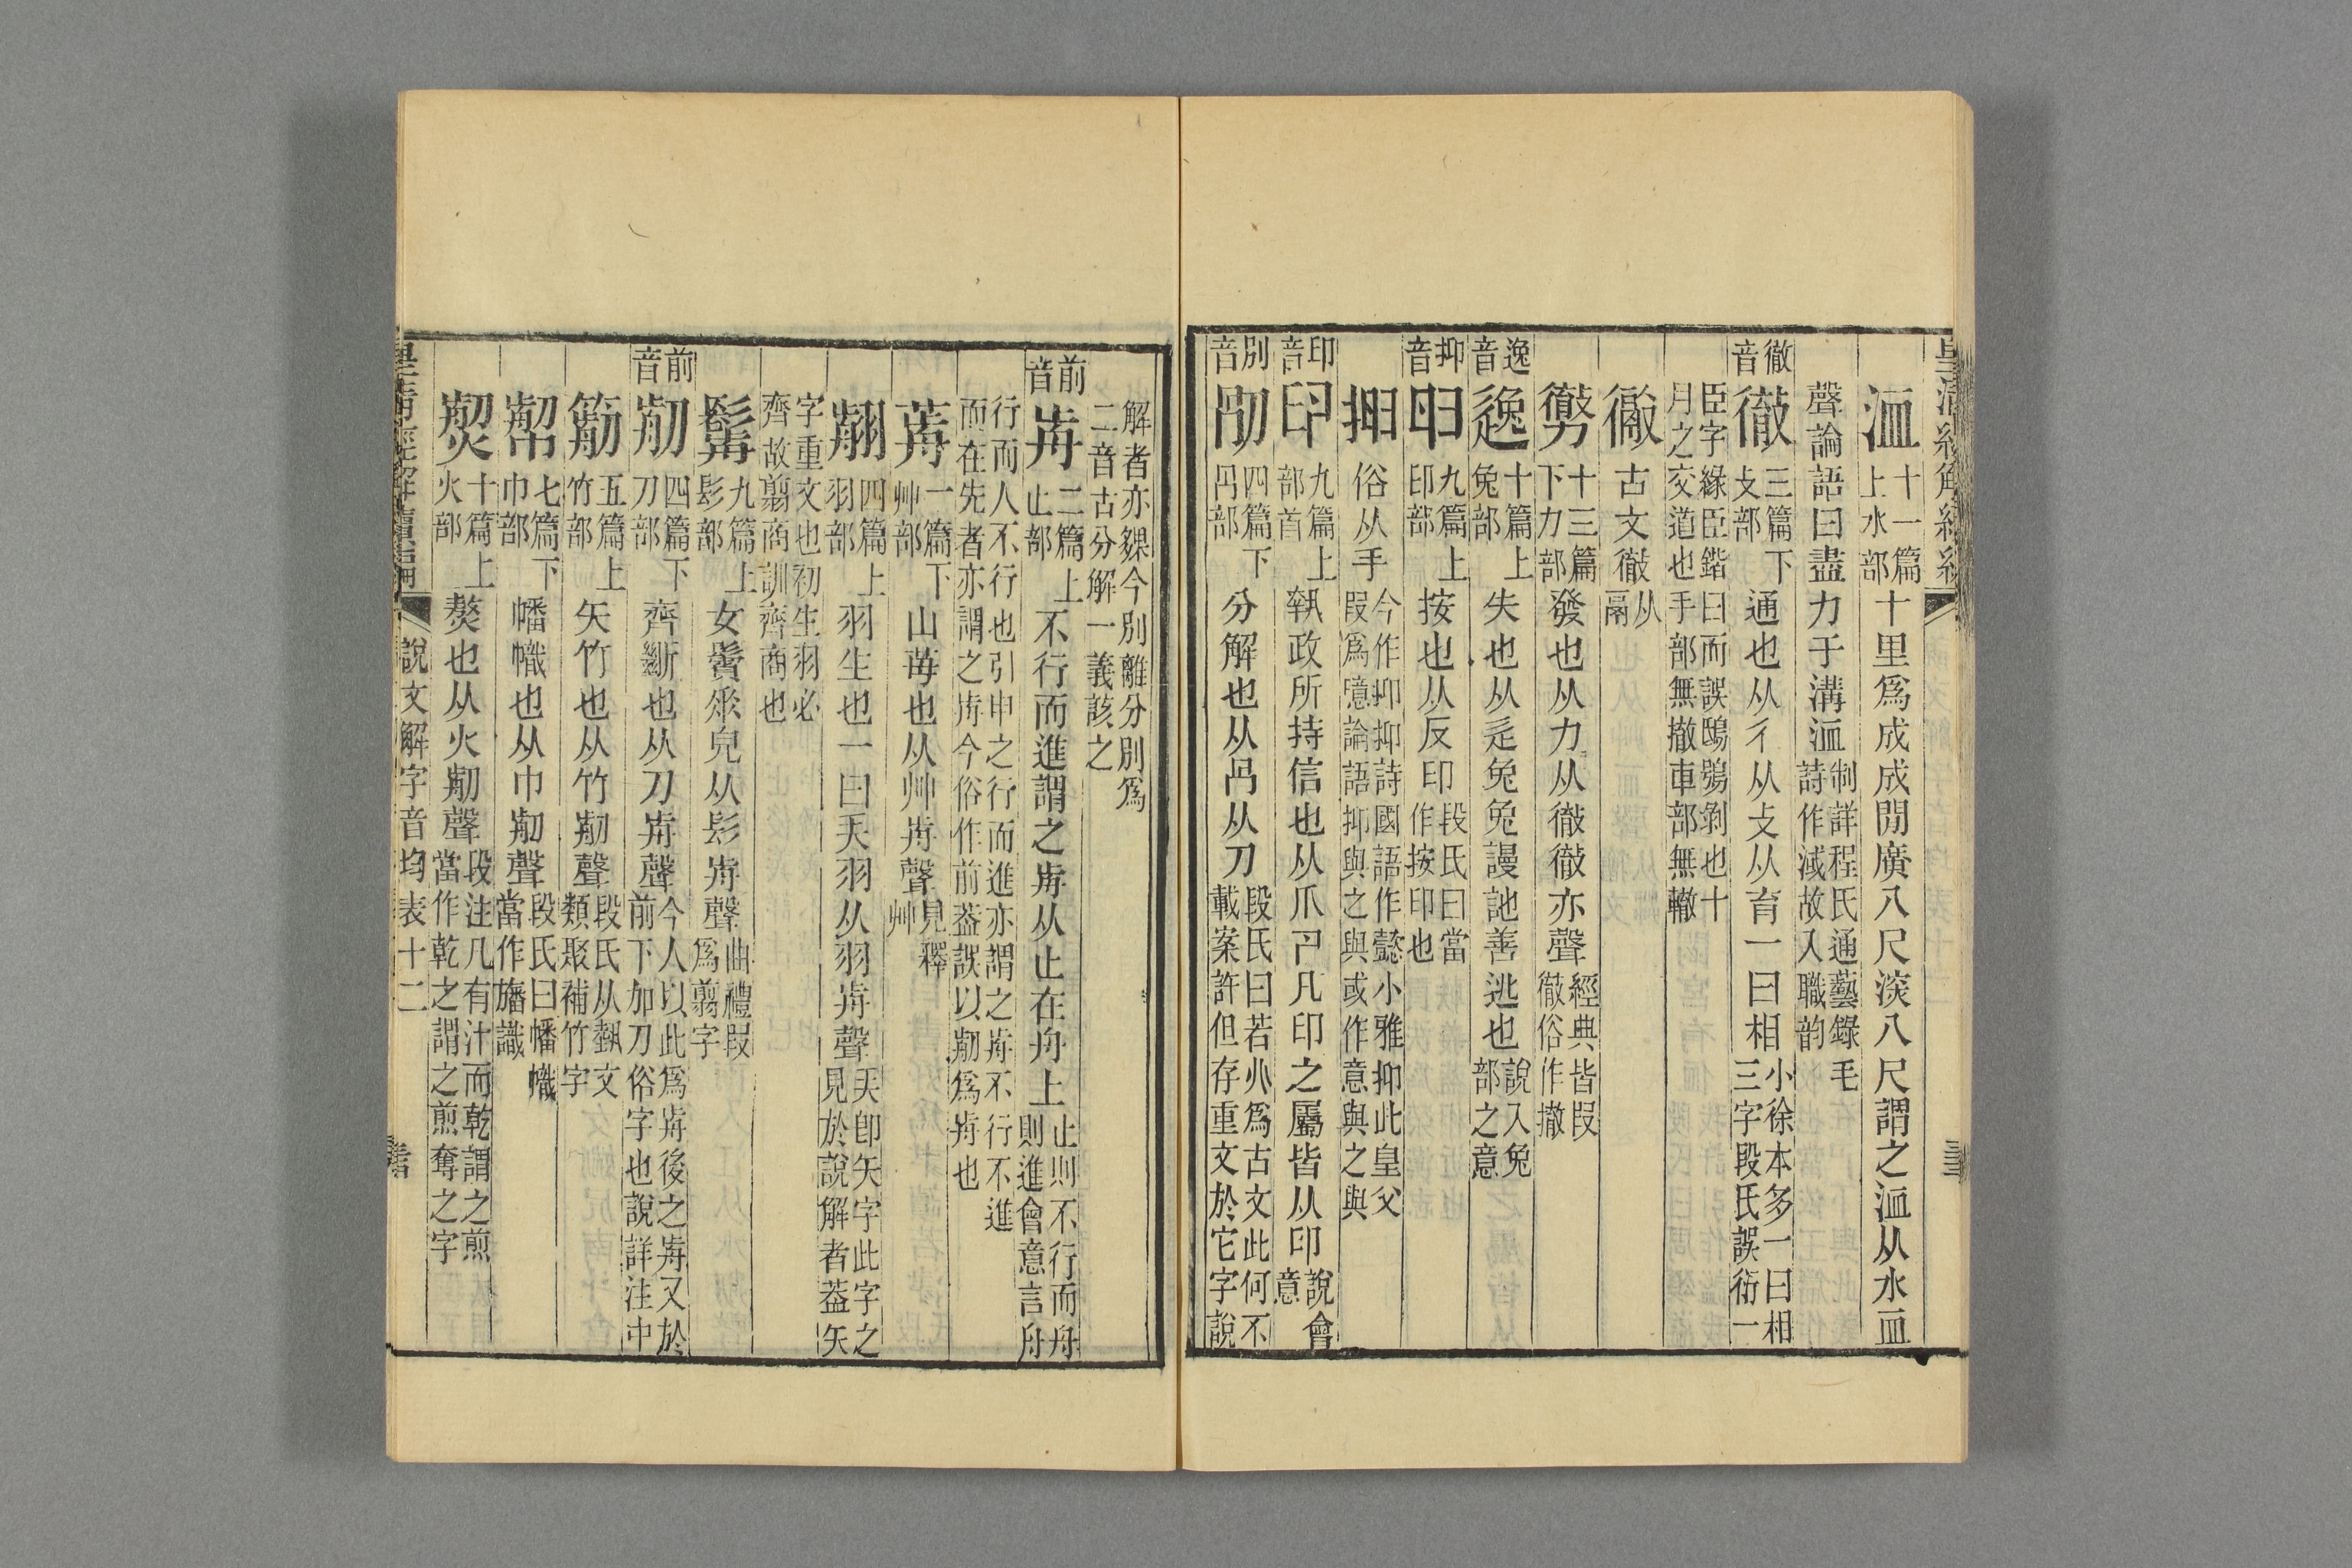 洫 十一篇上水部 十里爲成成閒廣八尺深八尺謂之洫从水血
聲論語曰盡力于溝洫 制詳程氏通藝錄毛詩作淢故入職韵
徹音 徹 三篇下攴部 通也从彳从攴从育一曰相 小徐本多一曰相三字段氏誤衍一
臣字緣臣鍇曰而誤鴟鴞剝也十月之交道也手部無撤車部無轍
㣿 古文徹 从鬲
勶 十三篇下力部 發也从力从徹徹亦聲 經典皆叚徹俗作撤
逸音 逸 十篇上兔部 失也从辵兔兔謾訑善逃也 說入兔部之意
抑音 𢑏 九篇上印部 按也从反印 段氏曰當作按印也
抑 俗从手 今作抑抑詩國語作懿小雅抑此皇父叚爲噫論語抑與之與或作意與之與
印音 印 九篇上部首 執政所持信也从爪卪凡印之屬皆从印 說會意
別音 𠛰 四篇下冎部 分解也从冎从刀 段氏曰若𠔁爲古文此何不載案許但存重文於它字說
解者亦䋣今別離分別爲二音古分解一義該之
前音 歬 二篇上止部 不行而進謂之歬从止在舟上 止則不行而舟則進會意言舟
行而人不行也引申之行而進亦謂之歬不行不進而在先者亦謂之歬今俗作前葢誤以剪爲歬也
葥 一篇下艸部 山莓也从艸歬聲 見釋艸
翦 四篇上羽部 羽生也一曰天羽从羽歬聲 天卽矢字此字之見於說解者葢矢
字重文也初生羽必齊故翦商訓齊商也
鬋 九篇上髟部 女鬢垂皃从髟歬聲 曲禮叚爲翦字
前音 剪 四篇下刀部 齊斷也从刀歬聲 今人以此爲歬後之歬又於前下加刀俗字也說詳注中
箭 五篇上竹部 矢竹也从竹剪聲 段氏从藝文類聚補竹字
㡐 七篇下巾部 幡幟也从巾剪聲 段氏曰幡幟當作旛識
煎 十篇上火部 熬也从火剪聲 段注凡有汁而乾謂之煎當作乾之謂之煎奪之字
說文解字音均表十二